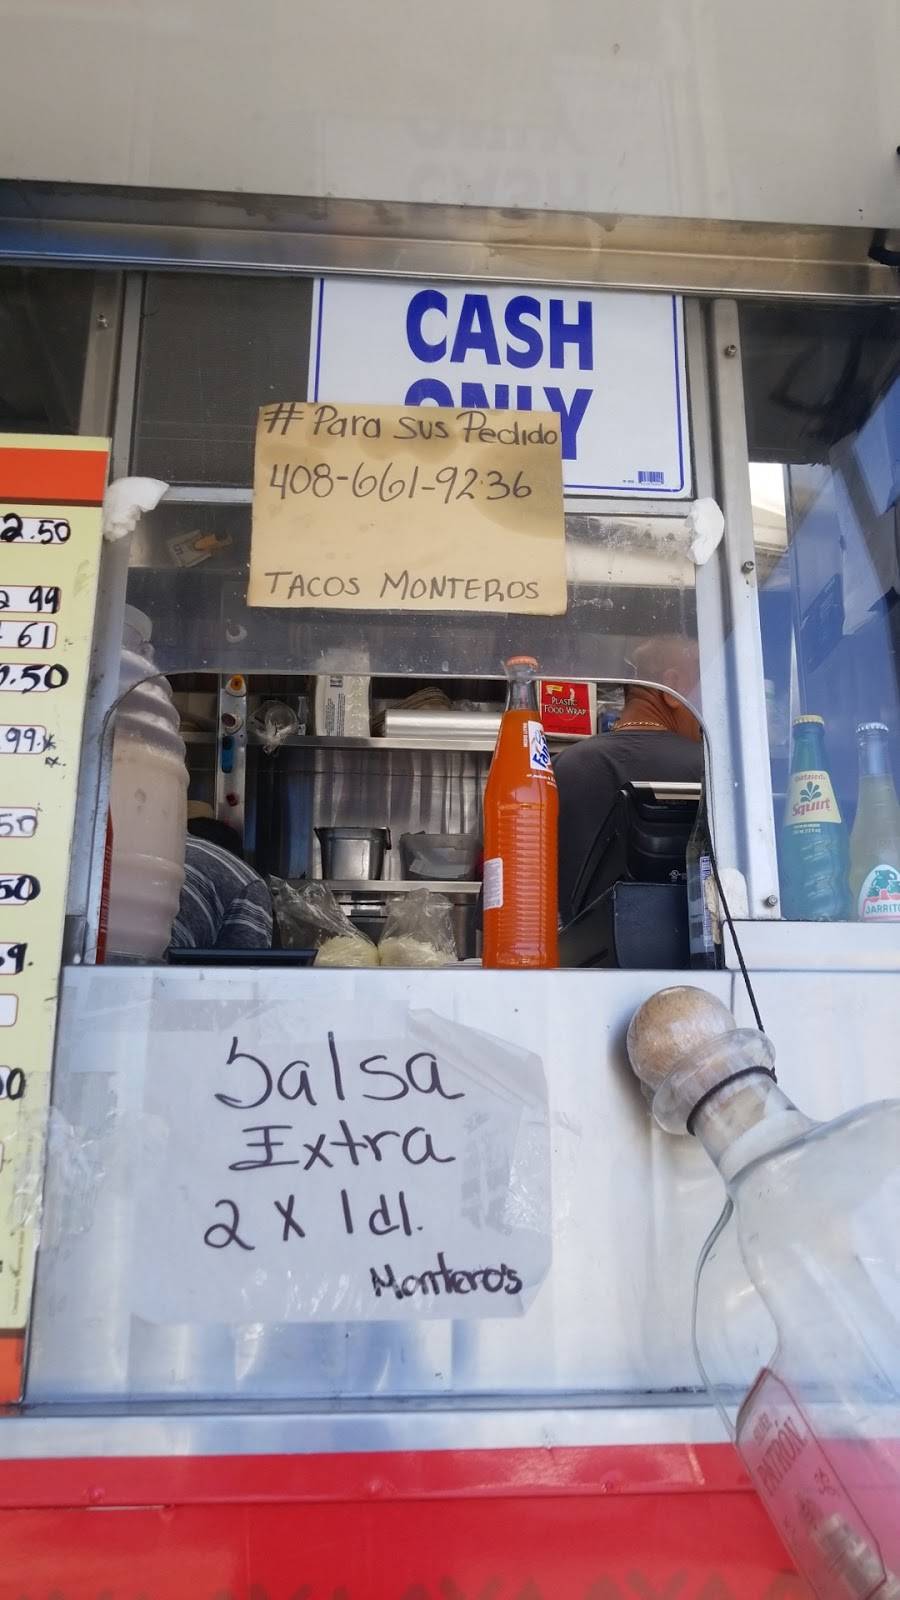 CASH
ONLY
# Para sus Pedido
408-661-9236
TACOS MONTEROS
2.50
99
61
.50
.99
50
50
9.
PLASTIC
FOOD WRAP
Squirt
JARRITO
Salsa
Extra
2 X 1 dl.
Montero's
PATRÓN